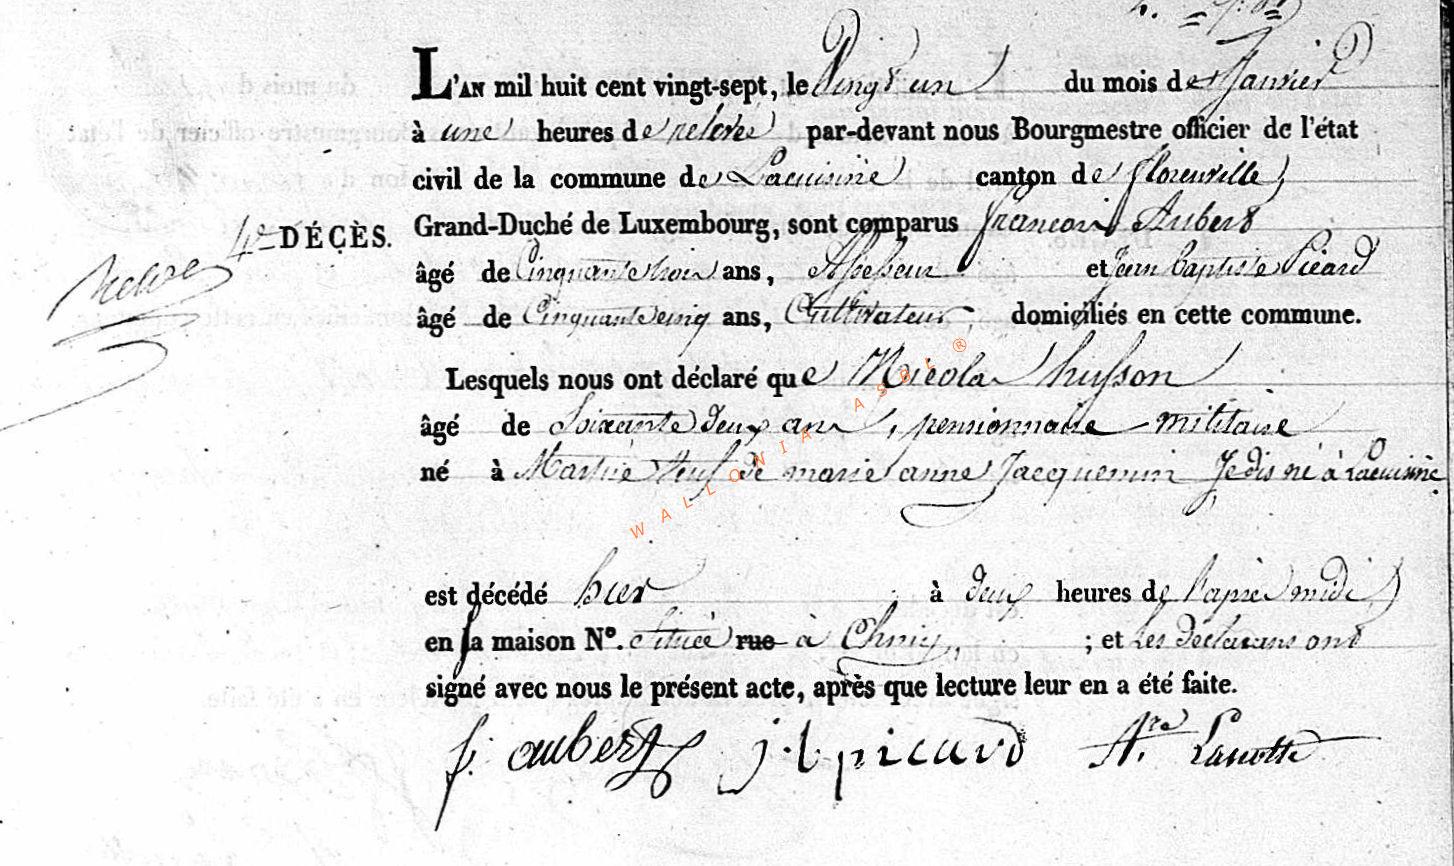 L'AN mil huit cent vingt-sept, le Vingt un du mois de Janvier
à une heures de relevée par-devant nous Bourgmestre officier de l'état
civil de la commune de Lacuisine canton de florenville,
Grand-Duché de Luxembourg, sont comparus francois Aubert
4e DÉCÈS.
âgé de Cinquante trois ans, Assesseur et Jean baptiste Picard
âgé de Cinquante cinq ans, Cultivateur domiciliés en cette commune.
Lesquels nous ont déclaré que Nicolas husson
âgé de Soixante deux ans, pensionnaire militaire
né à Martué Veuf de marie anne Jacquemin Je dis né à Lacuisine
WALLONIA ASBL ®
est décédé hier à deux heures de l'aprés midi
en la maison N°. située rue à ; et Les déclarans ont
signé avec nous le présent acte, après que lecture leur en a été faite.
f. aubert j b picard